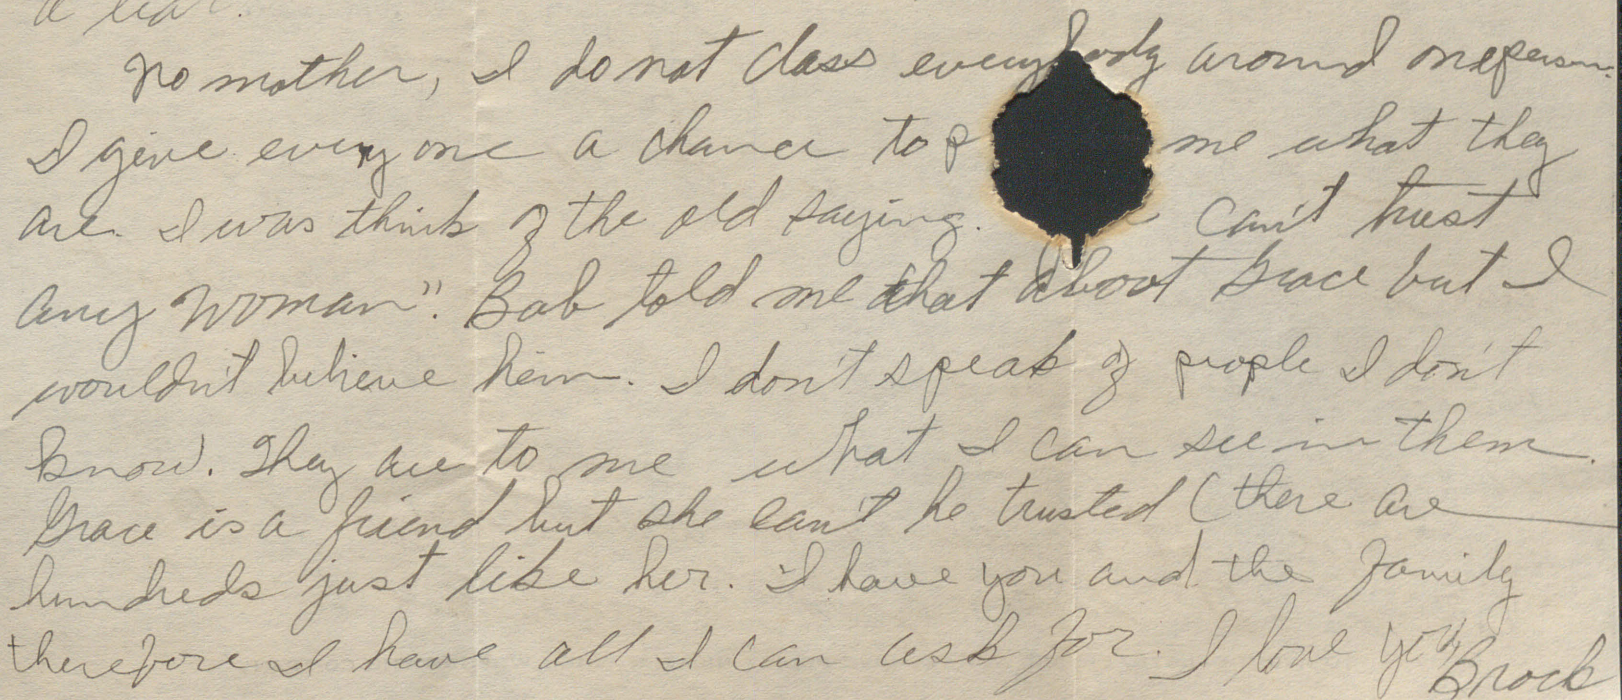 a liar.
No mother, I do not class everybody around one person.
I give everyone a chance to p me what they
are. I was think of the old saying. can't trust
any woman". Bob told me that about Grace but I
wouldn't believe him. I don't speak of people I don't
know. They are to me what I can see in them.
Grace is a friend but she can't be trusted (there are
hundreds just like her. I have you and the family
therefore I have all I can ask for. I love you
Brock